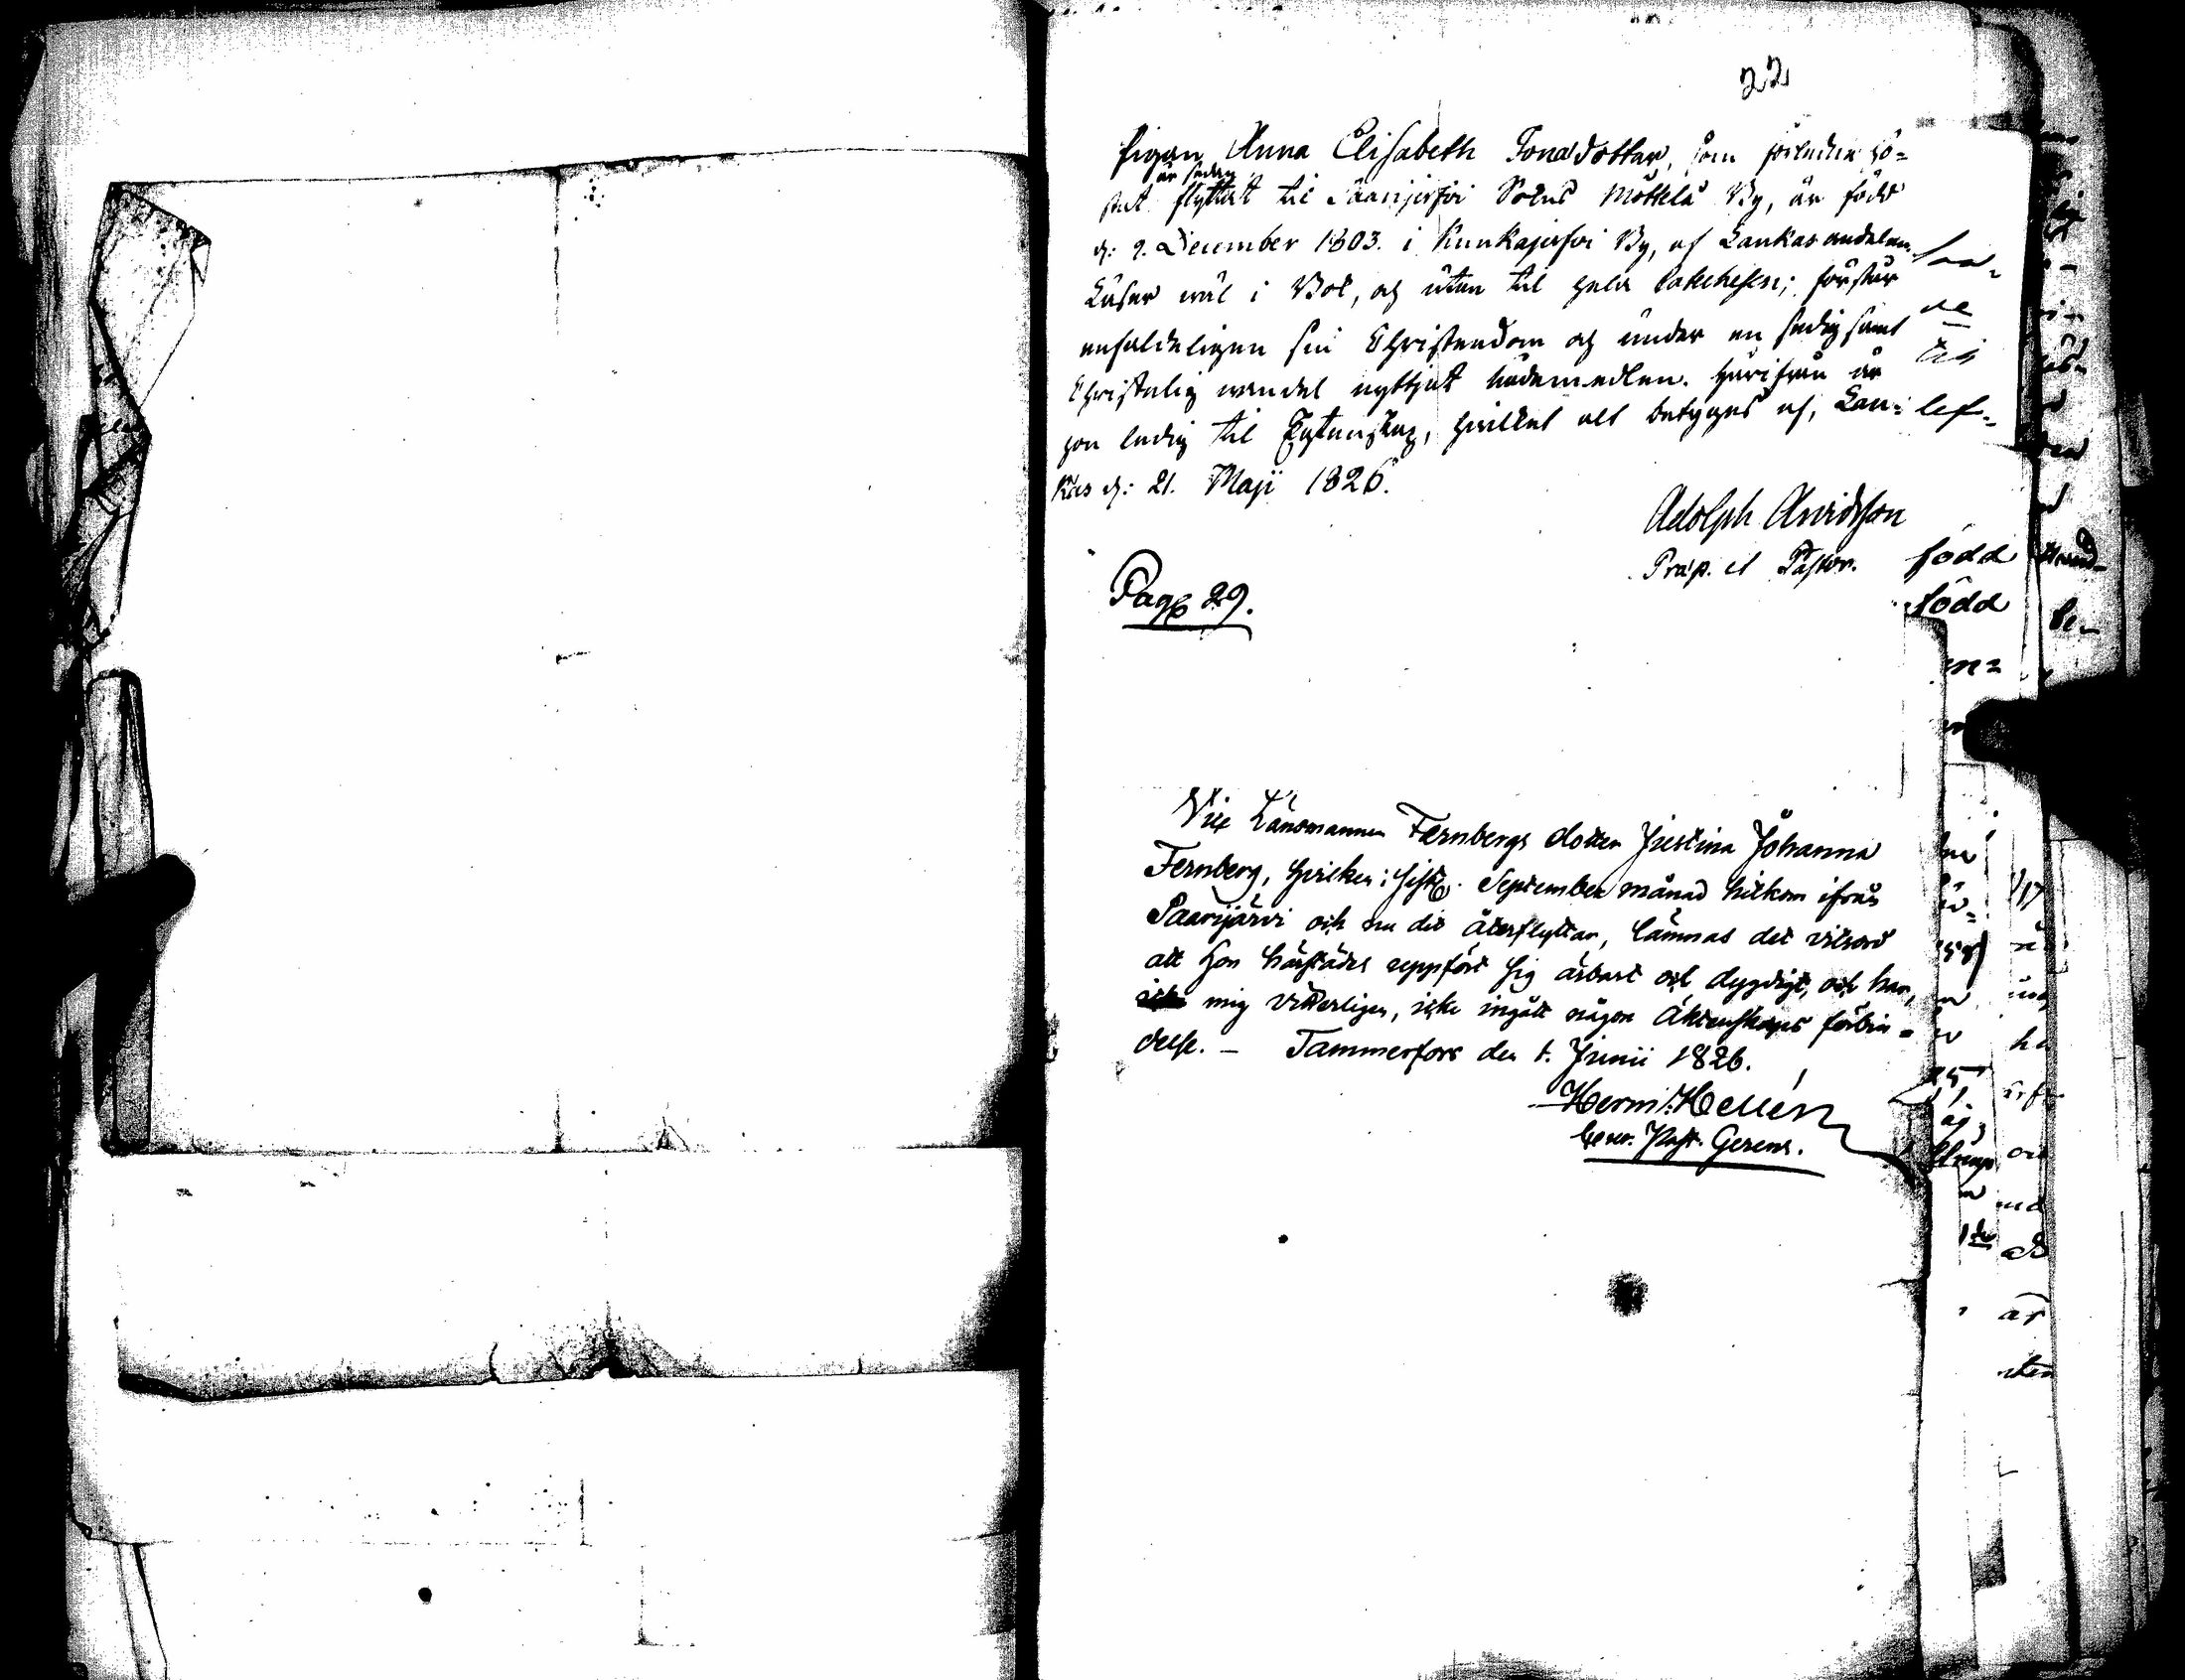 22
Pigan Anna Elisabeth Jonasdotter, som förleden hö=
är sedan
st flyttat til Saarijerfvi Sokns Möttelä By, är född
d: 9. December 1803. i Kunkajerfvi By, af Laukas andelen
Läser wäl i Bok, och utan til hela Catechesen; förstår
enfaldeligen sin Christendom och under en sedig samt
Christelig wandel nyttjat nådemedlen. Härifrån är
hon ledig til Egtenskap, hvilket alt betygas af, Lau=
kas d: 21. Maji 1826.
Adolph Arvidsson
Præp. et Pastor.
Pag 29.
född
född
Vice Länsmannen Fernbergs dotter Justina Johanna
Fernberg, hvilken i sistl. September månad hitkom ifrån
Saarijärvi och nu dit återflyttar, lämnas det vitsord
att hon härstädes uppfört sig ärbart och dygdigt, och har,
mig vitterligen, icke ingått någon Äktenskaps förbin=
delse. — Tammerfors den 1. Junii 1826.
Herm: Hellén
Past. Gerens.